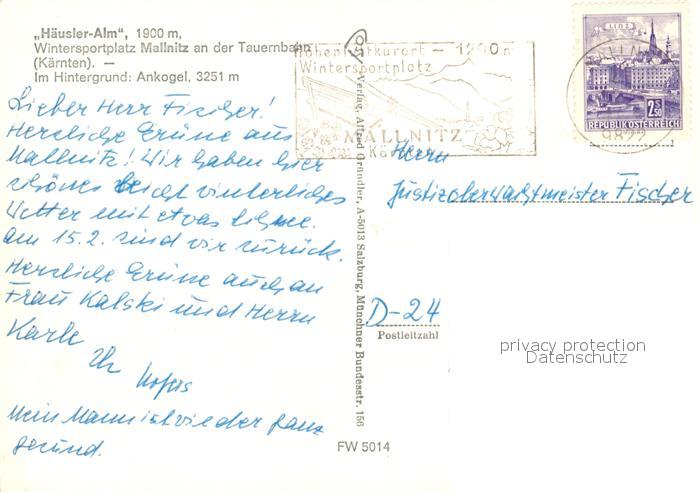 „Häusler-Alm“, 1900 m,
Wintersportplatz Mallnitz an der Tauernbahn
(Kärnten). —
Im Hintergrund: Ankogel, 3251 m
Lieber Herr Fischer!
Herzliche Grüße aus
Mallnitz! Wir haben hier
schönes leicht winterliches
Wetter mit etwas Schnee.
Am 15.2. sind wir zurück.
Herzliche Grüße auch an
Frau Kalski und Herrn
Karle
Ihr
Mein Mann ist wieder ganz
gesund.
Verlag Alfred Gründler, A-5013 Salzburg, Münchner Bundesstr. 156
FW 5014
Höhenluftkurort – 1200 m
Wintersportplatz
MALLNITZ
Kärnten
LINZ
2.50
S
REPUBLIK ÖSTERREICH
9822
Herrn
Justizoberwachtmeister Fischer
D-24
Postleitzahl
privacy protection
Datenschutz